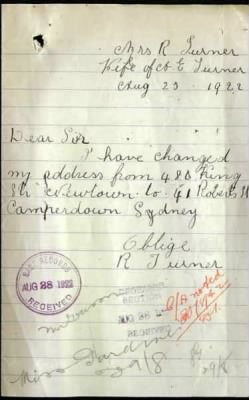 Mrs R Turner
Wife of E Turner
Aug 23 1922
Dear Sir
I have changed
my address from 480 King
St Newtown to 41 Roberts St
Camperdown Sydney
Oblige
R Turner
BASE RECORDS
AUG 28 1922
RECEIVED
RECORDS
SECTION
AUG 28
RECEIVED
C/A noted
Miss Gardiner
29/8
29/8